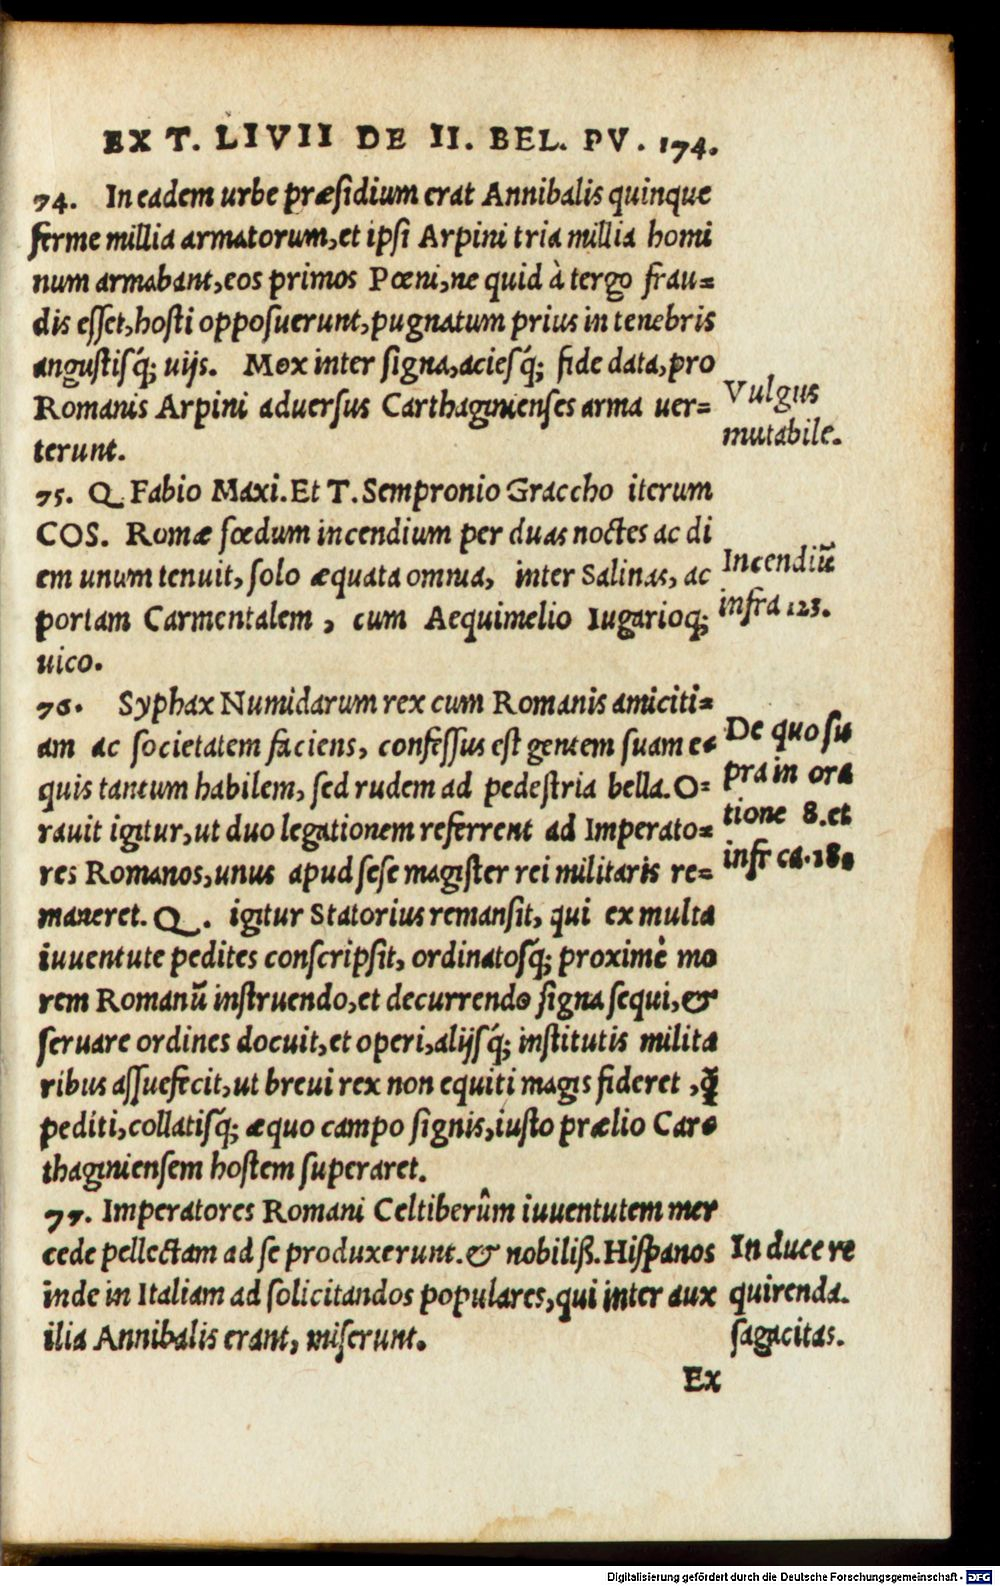 EX T. LIVII DE II. BEL. PV. 174.
74. In eadem urbe præsidium erat Annibalis quinque
ferme millia armatorum,et ipsi Arpini tria millia homi
num armabant,eos primos Pœni,ne quid à tergo frau=
dis esset,hosti opposuerunt,pugnatum prius in tenebris
angustisq́; uijs. Mox inter signa,aciesq́; fide data,pro
Romanis Arpini aduersus Carthaginienses arma uer=
terunt.
Vulgus
mutabile.
75. Q. Fabio Maxi. Et T. Sempronio Graccho iterum
COS. Romæ fœdum incendium per duas noctes ac di
em unum tenuit, solo æquata omnia, inter Salinas, ac
portam Carmentalem, cum Aequimelio Iugarioq;
uico.
Incendiũ
infra 123.
76. Syphax Numidarum rex cum Romanis amiciti=
am ac societatem faciens, confessus est gentem suam e=
quis tantum habilem, sed rudem ad pedestria bella. O=
rauit igitur, ut duo legationem referrent ad Imperato=
res Romanos,unus apud sese magister rei militaris re=
maneret. Q. igitur Statorius remansit, qui ex multa
iuuentute pedites conscripsit, ordinatosq́; proximè mo
rem Romanũ instruendo,et decurrendo signa sequi,&
seruare ordines docuit,et operi,alijsq́; institutis milita
ribus assuefecit,ut breui rex non equiti magis fideret ,q̃
pediti,collatisq́; æquo campo signis,iusto prælio Car=
thaginiensem hostem superaret.
De quo su
pra in ora
tione 8.et
infr ca.180
77. Imperatores Romani Celtiberûm iuuentutem mer
cede pellectam ad se produxerunt.& nobiliß. Hispanos
inde in Italiam ad solicitandos populares,qui inter aux
ilia Annibalis erant, miserunt.
In duce re
quirenda.
sagacitas.
Ex
Digitalisierung gefördert durch die Deutsche Forschungsgemeinschaft - DFG